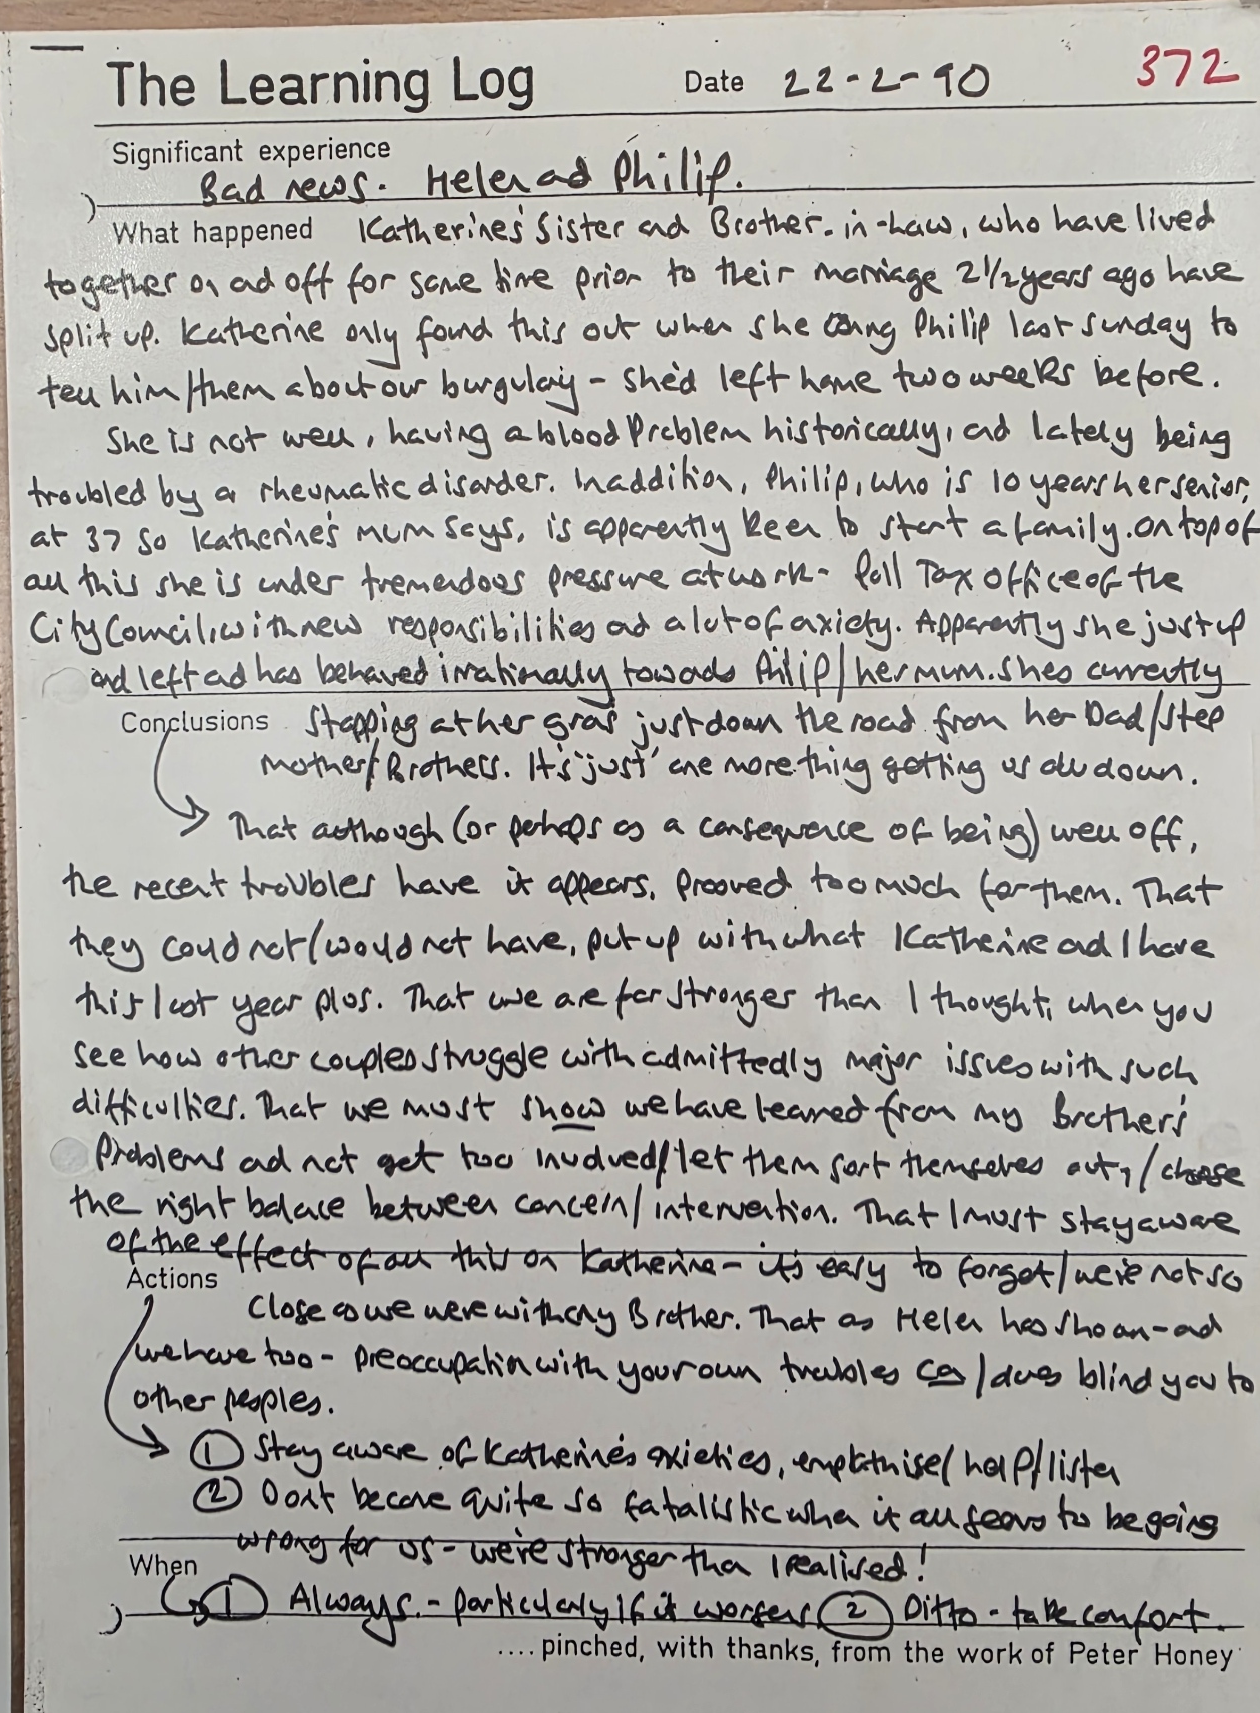 The Learning Log Date 22-2-90 372
Significant experience
Bad news. Helen ad Philip.
What happened Katherine's Sister and Brother-in-Law, who have lived
together on ad off for some time prior to their marriage 2½ years ago have
split up. Katherine only found this out when she rang Philip last Sunday to
tell him/them about our burgulay - she'd left home two weeks before.
She is not well, having a blood Problem historically, ad lately being
troubled by a rheumatic disorder. In addition, Philip, who is 10 years her senior,
at 37 so Katherine's mum says, is apparently keen to start a family. On top of
all this she is under tremendous pressure at work - Poll Tax office of the
City Council, with new responsibilities ad a lot of axiety. Apparently she just up
and left ad has behaved irrationally towards Philip/her mum. Shes currently
Conclusions Stopping at her gran's just down the road from her Dad/Step
mother/Brothers. It's 'just' one more thing getting us all down.
That although (or perhaps as a consequence of being) well off,
the recent troubles have it appears, prooved too much for them. That
they could not/would not have, put up with what Katherine ad I have
this last year plus. That we are far stronger than I thought, when you
see how other couples struggle with admittedly major issues with such
difficulties. That we must show we have learned from my Brother's
Problems ad not get too involved/let them sort themselves out, /choose
the right balace between concern/intervention. That I must stay aware
of the effect of all this on Katherine - it's easy to forget/we're not so
Actions
close as we were with my Brother. That as Helen has shown - ad
we have too - preoccupation with your own troubles can/does blind you to
other peoples.
① Stay aware of Katherine's axieties, empathise/help/listen
② Don't become quite so fatalistic when it all seems to be going
wrong for us - we're stronger tha I realised!
When
① Always. - particularly if it worsens ② Ditto - take comfort.
.... pinched, with thanks, from the work of Peter Honey